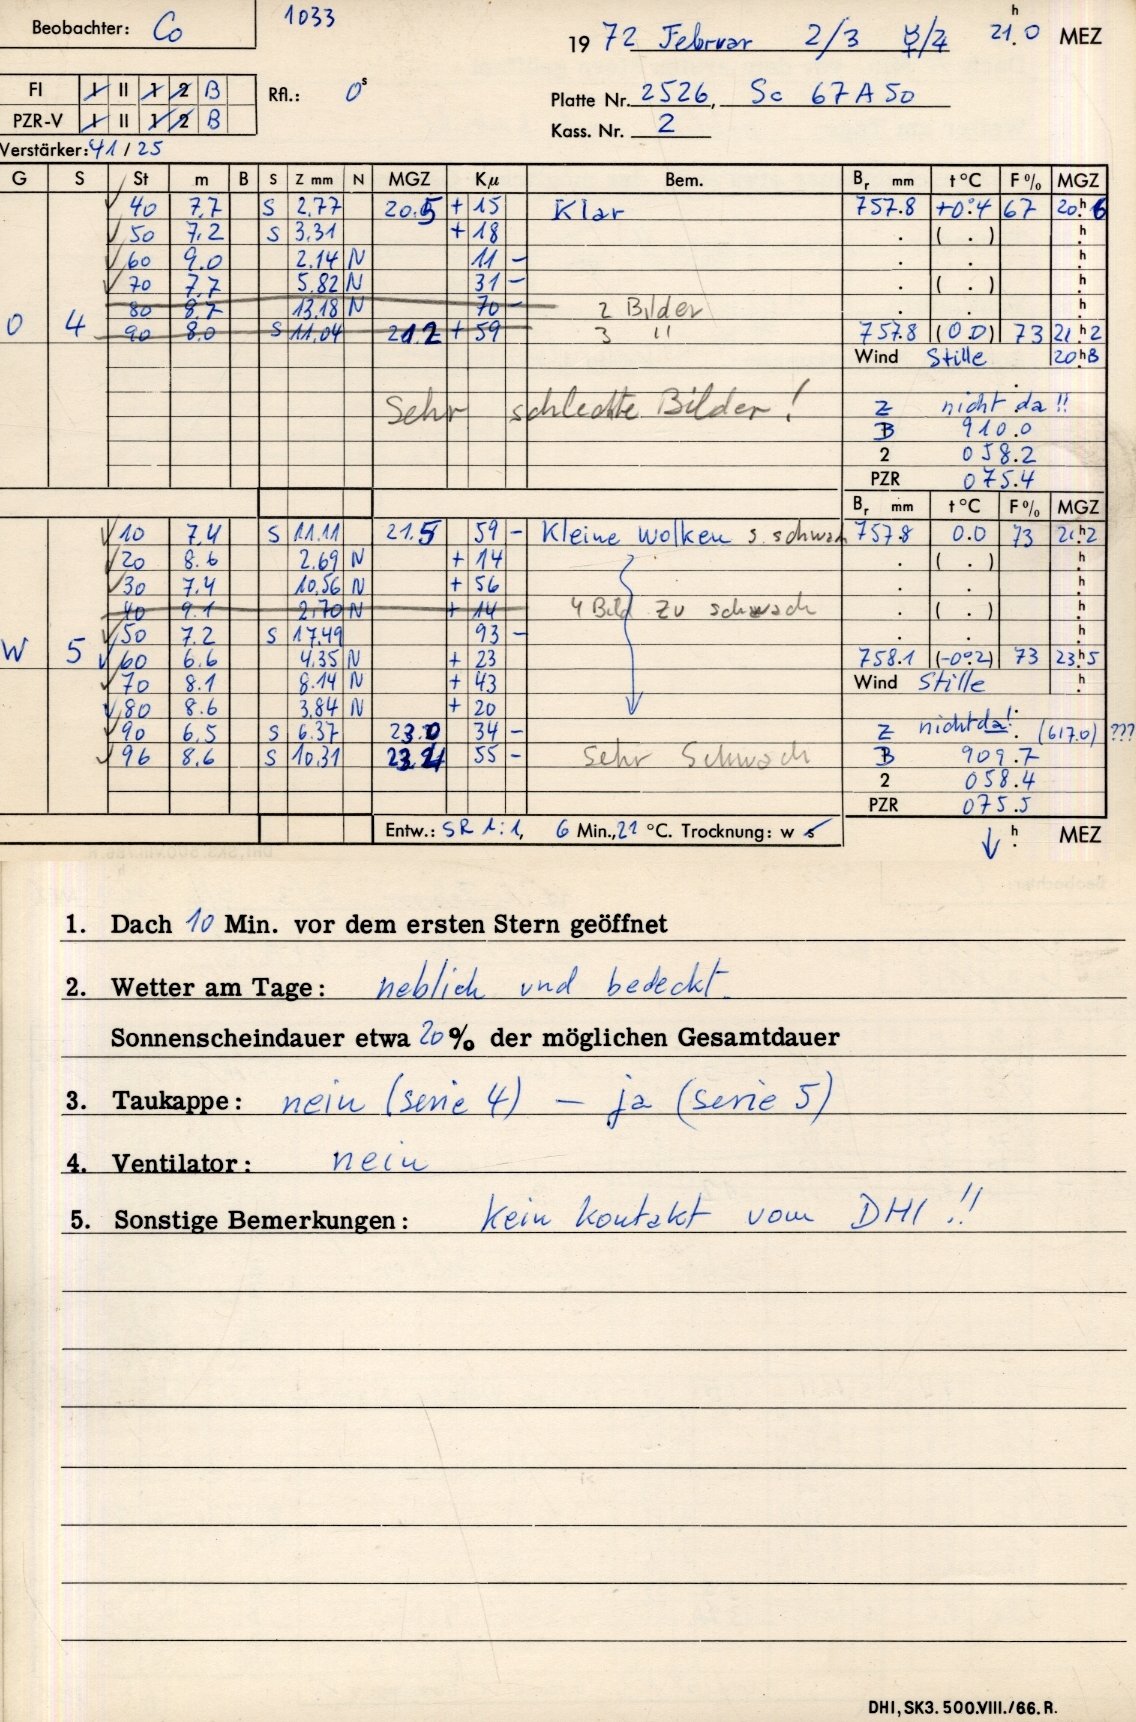 Beobachter: Co 1033
1972 Februar 2/3 ☿/♃ 21.0 h MEZ
FI I II 1 2 B
Rfl.: 0s
Platte Nr. 2526, Sc 67A50
PZR-V I II 1 2 B
Kass. Nr. 2
Verstärker: 41/25
G S St m B S Z mm N MGZ Kμ Bem. Br mm t°C F% MGZ
40 7.7 S 2.77 20.5 + 15 Klar 757.8 +0.4 67 20h6
50 7.2 S 3.31 + 18 . ( . ) h
60 9.0 2.14 N 11 – . . h
70 7.7 5.82 N 31 – . ( . ) h
80 8.7 13.18 N 70 – 2 Bilder . . h
O 4 90 8.0 S 11.04 21.2 + 59 3 " 757.8 (0.0) 73 21h2
Wind Stille 20h8
Sehr schlechte Bilder! Z nicht da!!
B 910.0
2 058.2
PZR 075.4
Br mm t°C F% MGZ
10 7.4 S 11.11 21.5 59 – Kleine Wolken s. schwach 757.8 0.0 73 21h2
20 8.6 2.69 N + 14 . ( . ) h
30 7.4 10.56 N + 56 . . h
40 9.1 2.70 N + 14 4 Bild zu schwach . ( . ) h
50 7.2 S 17.49 93 – . . h
W 5 60 6.6 4.35 N + 23 758.1 (-0.2) 73 23h5
70 8.1 8.14 N + 43 Wind Stille h
80 8.6 3.84 N + 20
90 6.5 S 6.37 23.0 34 – Z nicht da!! (617.0) ???
96 8.6 S 10.31 23.4 55 – Sehr Schwach B 909.7
2 058.4
PZR 075.5
Entw.: SR 1:1, 6 Min., 21 °C. Trocknung: w s
↓ h MEZ
1. Dach 10 Min. vor dem ersten Stern geöffnet
2. Wetter am Tage: neblich und bedeckt.
Sonnenscheindauer etwa 20% der möglichen Gesamtdauer
3. Taukappe: nein (serie 4) – ja (serie 5)
4. Ventilator: nein
5. Sonstige Bemerkungen: Kein Kontakt vom DHI!!
DHI, SK3. 500.VIII./66. R.